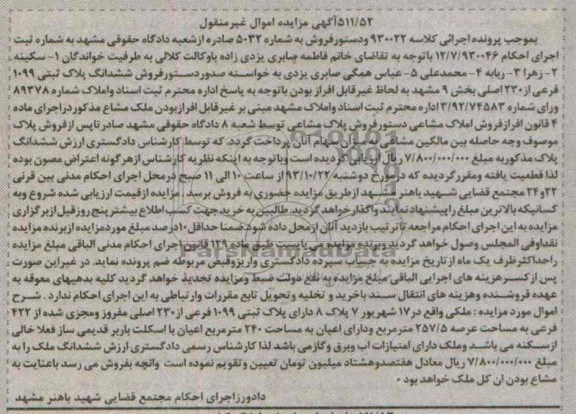 ۵۱۱/۵۲ آگهی مزایده اموال غیرمنقول
بموجب پرونده اجرائی کلاسه ۹۳۰۰۲۲ ودستورفروش به شماره ۵۰۳۲ صادره ازشعبه دادگاه حقوقی مشهد به شماره ثبت
اجرای احکام ۱۲/۷/۹۳۰۰۴۶ باتوجه به تقاضای خانم فاطمه صابری یزدی زاده باوکالت کلالی به طرفیت خواندگان ۱- سکینه
۲- زهرا ۳- ربابه ۴- محمدعلی ۵- عباس همگی صابری یزدی به خواسته صدوردستورفروش ششدانگ پلاک ثبتی ۱۰۹۹
فرعی از ۲۳۰ اصلی بخش ۹ مشهد به لحاظ غیرقابل افراز بودن باتوجه به پاسخ اداره محترم ثبت اسناد واملاک شماره ۸۹۳۷۸
ورای شماره ۳/۹۲/۷۴۵۸۳ اداره محترم ثبت اسناد واملاک مشهد مبنی بر غیرقابل افرازبودن ملک مشاع مذکوردراجرای ماده
۴ قانون افرازفروش املاک مشاعی دستور فروش پلاک مشاعی توسط شعبه ۸ دادگاه حقوقی مشهد صادرتاپس ازفروش پلاک
موصوف وجه حاصله بین مالکین مشاعی به میزان سهام آنان پرداخت گردد. که توسط کارشناس دادگستری ارزش ششدانگ
پلاک مذکوربه مبلغ ۷/۸۰۰/۰۰۰/۰۰۰ ریال ارزیابی گردیده است وباتوجه به اینکه نظریه کارشناس ازهرگونه اعتراض مصون بوده
لذا قطعیت یافته ومقررگردیده که درتاریخ دوشنبه ۹۳/۱۰/۲۲ از ساعت ۱۰ الی ۱۱ صبح درمحل اجرای احکام مدنی بین قرنی
۲۲و۲۴ مجتمع قضایی شهید باهنر مشهد ازطریق مزایده حضوری به فروش برسد. مزایده ازقیمت ارزیابی شده شروع وبه
کسانیکه بالاترین مبلغ راپیشنهاد نمایند واگذار خواهد گردید. طالبین به خرید جهت کسب اطلاع بیشترپنج روزقبل ازبرگزاری
مزایده به این اجرای احکام مراجعه تاترتیب بازدید آنان ازمحل داده شود. ضمنا حداقل ۱۰درصد مبلغ مورد مزایده ازبرنده مزایده
نقداوفی المجلس وصول خواهد گردید وبرنده مزایده می بایست طبق ماده ۱۲۹ قانون اجرای احکام مدنی الباقی مبلغ مزایده
راحداکثرظرف یک ماه از تاریخ مزایده به حساب سپرده دادگستری واریزوقبض مربوطه ضم پرونده نماید. در غیراین صورت
پس ازکسرهزینه های اجرایی الباقی مبلغ مزایده به نفع دولت ضبط ومزایده تجدید خواهد گردید کلیه بدهیهای معوقه به
عهده فروشنده وهزینه های انتقال سند باخرید و تخلیه وتحویل تابع مقررات وارتباطی به این اجرای احکام ندارد. شرح
اموال مورد مزایده: ملکی واقع در۱۷ شهریور ۷ پلاک ۸ دارای پلاک ثبتی ۱۰۹۹ فرعی از ۲۳۰ اصلی مفروز ومجزی شده از ۴۲۲
فرعی به مساحت عرصه ۲۵۷/۵ مترمربع ودارای اعیان به مساحت ۲۴۰ مترمربع اعیان با اسکلت باربر قدیمی ساز فعلا خالی
ازسکنه می باشد وملک دارای امتیازات اب وبرق وگازمی باشد لذا کارشناس رسمی دادگستری ارزش ششدانگ ملک را به
مبلغ ۷/۸۰۰/۰۰۰/۰۰۰ ریال معادل هفتصدوهشتاد میلیون تومان تعیین وتقویم نموده است وانچه بفروش می رسد باعنایت به
مشاع بودن ان کل ملک خواهد بود.
دادورزاجرای احکام مجتمع قضایی شهید باهنر مشهد